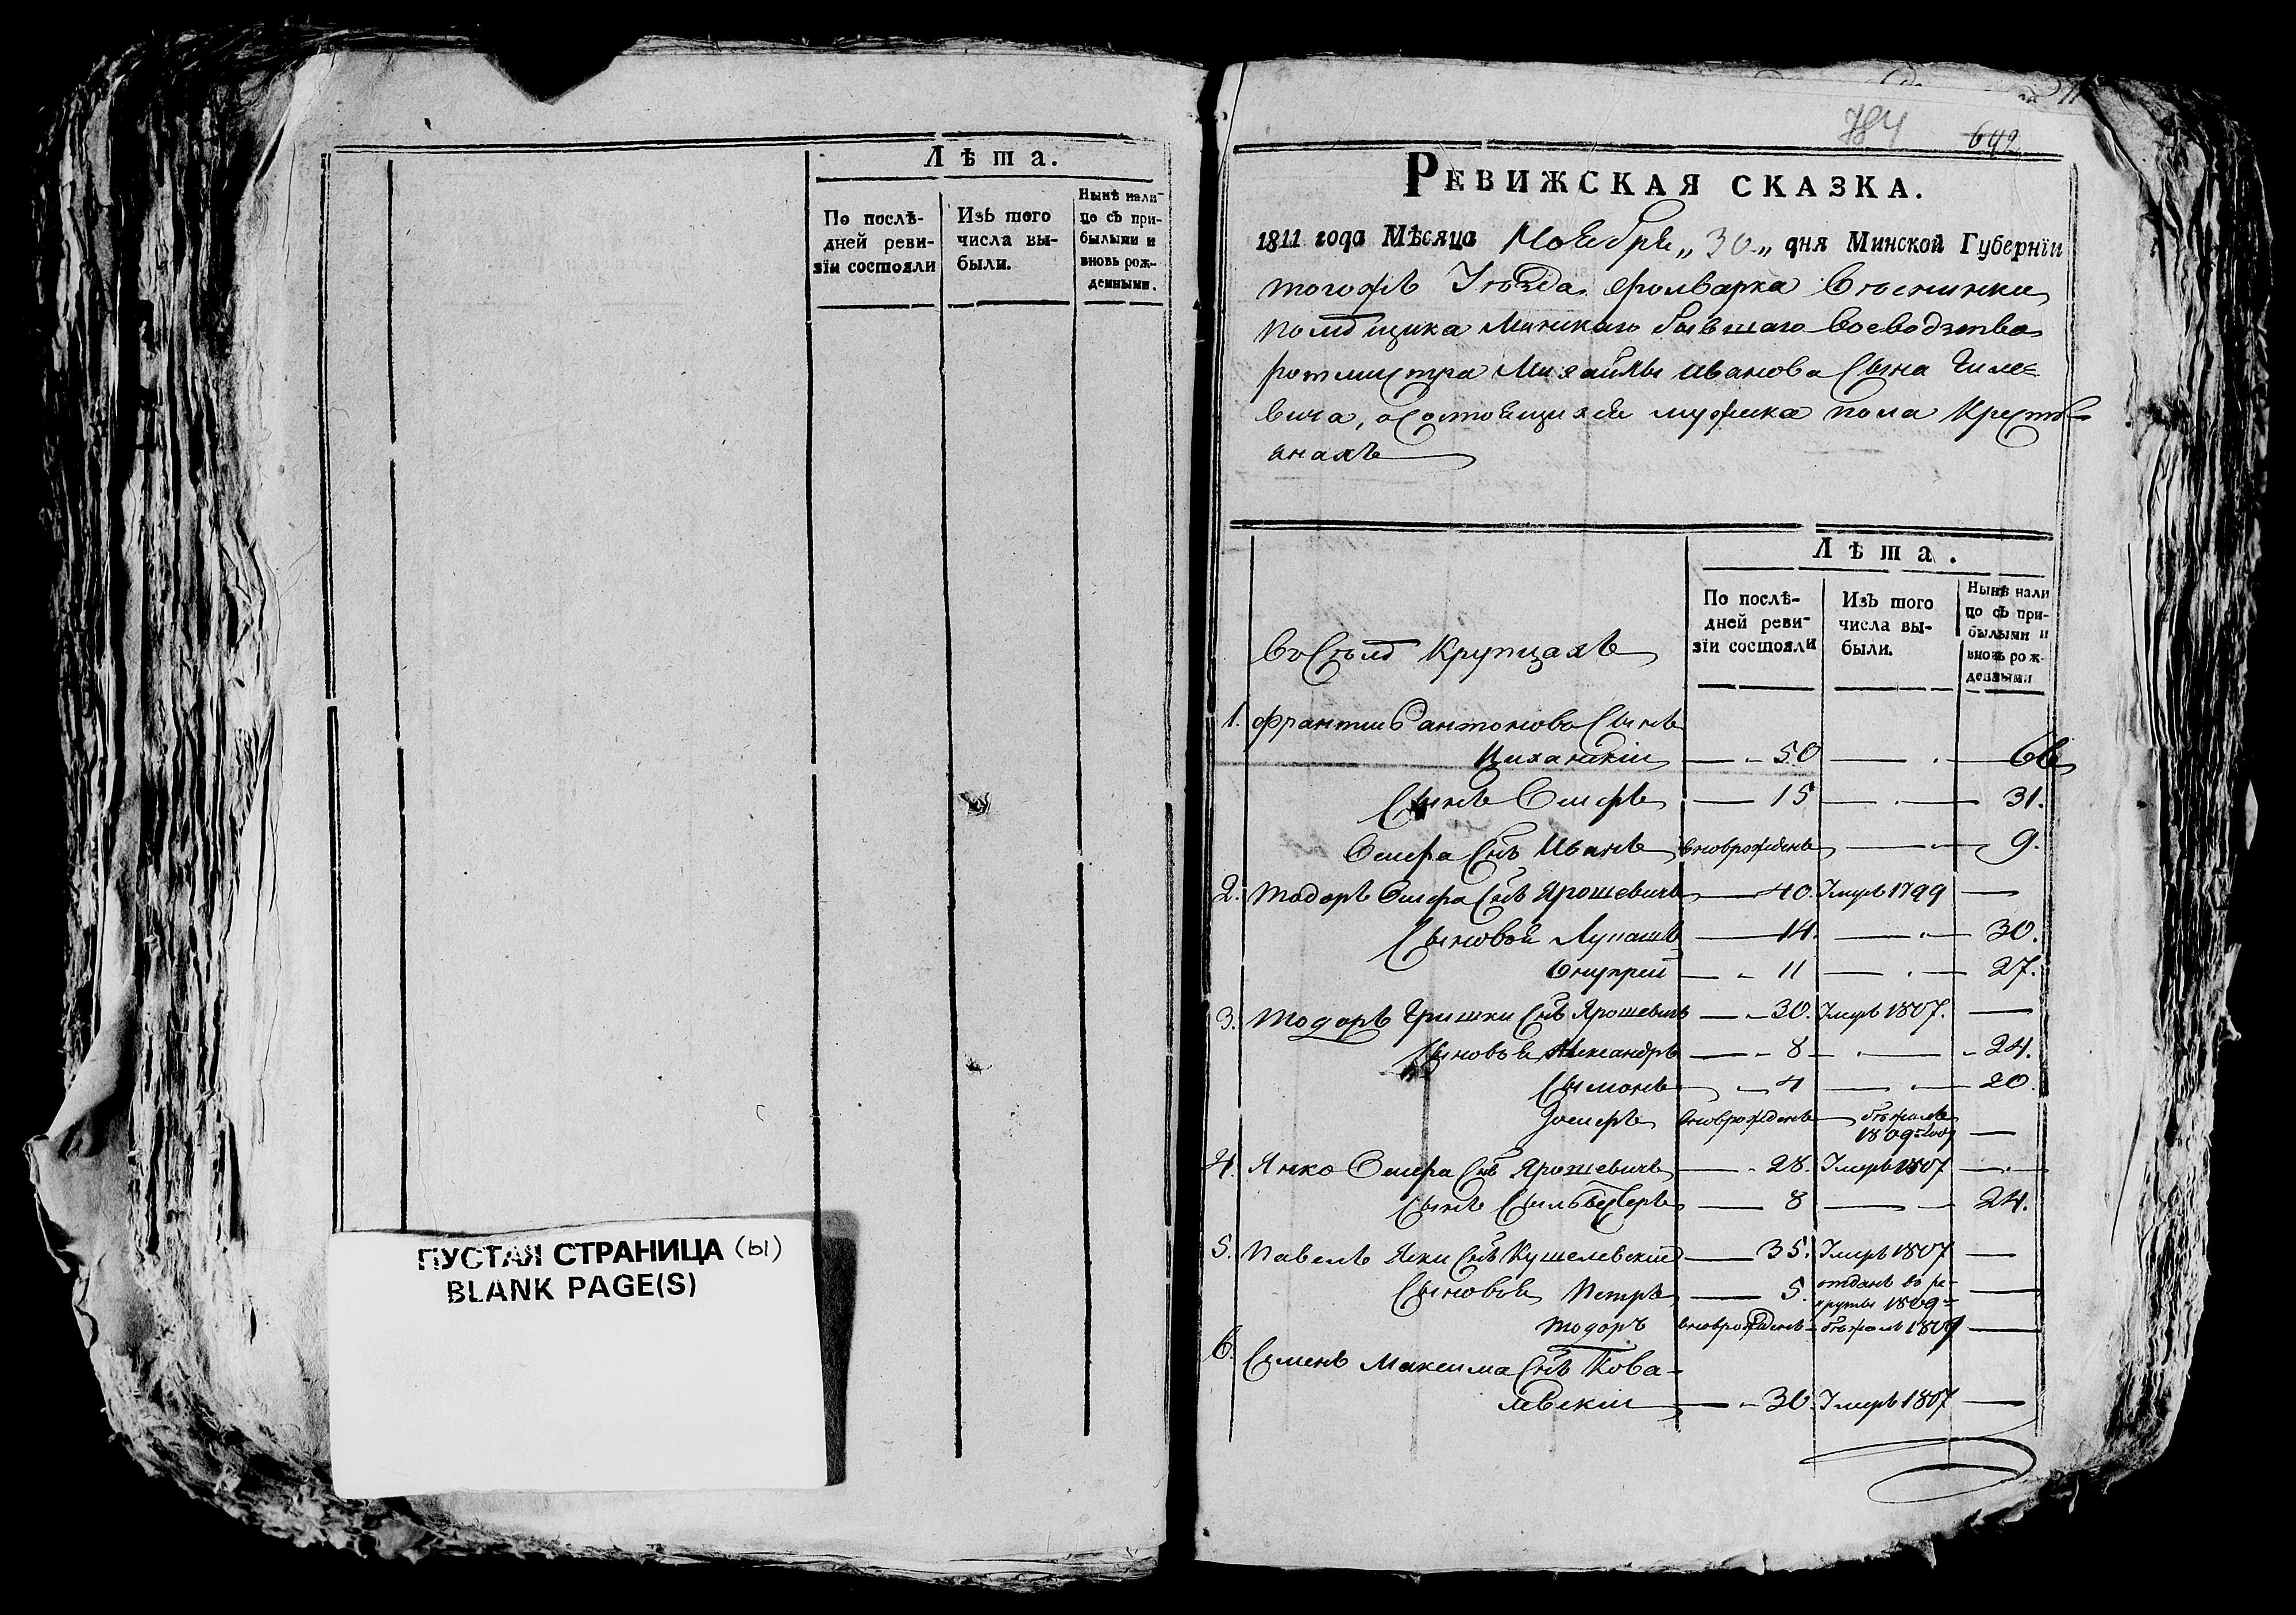 Лѣта.
По послѣ-
дней реви-
зїи состояли
Изъ того
числа вы-
были.
Нынѣ нали-
цо съ при-
былыми и
вновь рож-
денными.
ПУСТАЯ СТРАНИЦА (ы)
BLANK PAGE(S)
784
642
РЕВИЖСКАЯ СКАЗКА.
1811 года Мѣсяца Ноября „30„ дня Минской Губернїи
тогожъ Уѣзда фольварка
помѣщика Минскаго бывшаго воеводства
ротмистра Михайлы Иванова сына Гиле-
вича, о состоящихся мужска пола кресть-
янахъ
Лѣта.
По послѣ-
дней реви-
зїи состояли
Изъ того
числа вы-
были.
Нынѣ нали
цо съ при-
былыми и
вновь рож-
денными
Въ селѣ Крупцахъ
1. Францишъ Антоновъ сынъ
Циханскiй — 50 — 66
сынъ Осифъ — 15 — 31.
Осифа снъ Иванъ вновьрожденъ — 9.
2. Тодоръ Осифа снъ Ярошевичъ — 40. Умеръ 1799 —
сыновья Лукашъ — 14. — 30.
Онупрей — 11 — 27.
3. Тодоръ Гришки снъ Ярошевичъ — 30. Умеръ 1807. —
сыновья Александръ — 8 — 24.
Сымонъ — 4 — 20.
Iосифъ вновьрожденъ — бѣжалъ
1809 году —
4. Янко Осифа снъ Ярошевичъ — 28. Умеръ 1807 —
сынъ Сильвестеръ — 8 — 24.
5. Павелъ Яски снъ Кушелевскiй — 35. Умеръ 1807 —
сыновья Петръ — 5. отданъ въ ре-
круты 1809 —
Тодоръ вновьрожденъ — бѣжалъ 1809 —
6. Семенъ Максима снъ Кова-
левскiй — 30. Умеръ 1807 —